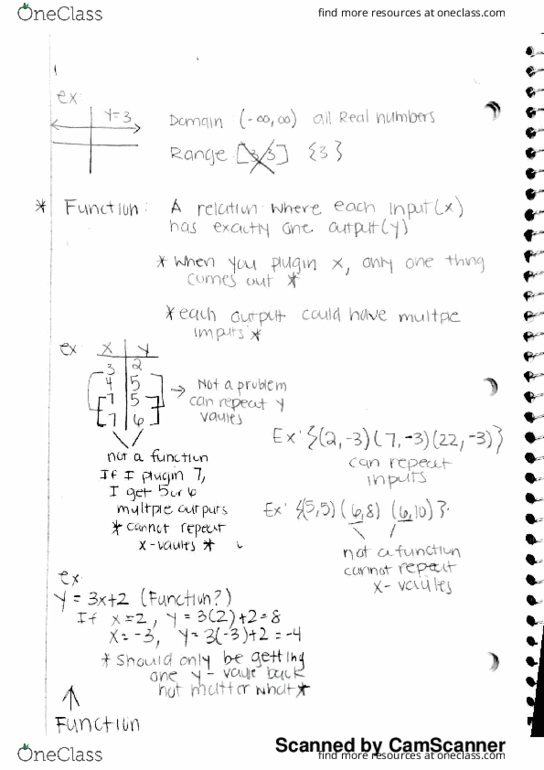 OneClass
find more resources at oneclass.com
ex:
Y=3
Domain (-∞,∞) all Real numbers
Range [3,3] {3}
* Function: A relation where each input(x)
has exactly one output(y)
* When you plugin x, only one thing
comes out *
* each output could have multpe
imputs *
ex:
X Y
3 2
4 5
7 5
7 6
→ Not a problem
can repeat y
vaules
not a function
If I plugin 7,
I get 5 or 6
multple outputs
* cannot repeat
x-vaules *
Ex: {(2,-3)(7,-3)(22,-3)}
can repeat
inputs
Ex: {(5,5)(6,8)(6,10)}
not a function
cannot repeat
x-vaules
ex:
Y=3x+2 (Function?)
If x=2, y=3(2)+2=8
x=-3, y=3(-3)+2=-4
* Should only be getting
one y-vaule back
not matter what *
↑
Function
Scanned by CamScanner
OneClass
find more resources at oneclass.com